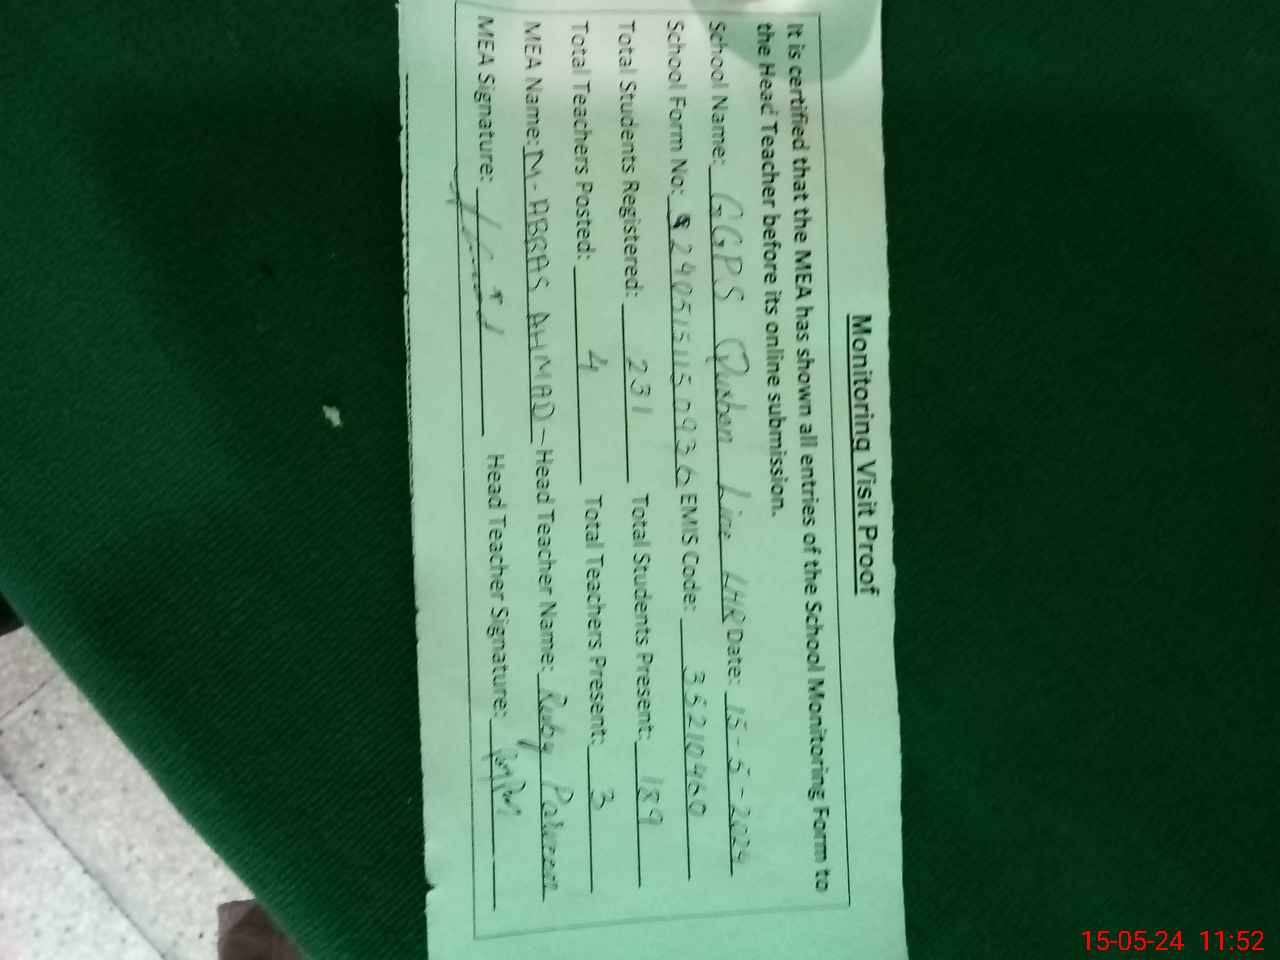 Monitoring Visit Proof
It is certified that the MEA has shown all entries of the School Monitoring Form to
the Head Teacher before its online submission.
School Name: GGPS Qurban Line LHR Date: 15-5-2024
School Form No: 2905151150936 EMIS Code: 35210460
Total Students Registered: 231 Total Students Present: 189
Total Teachers Posted: 4 Total Teachers Present: 3
MEA Name: M-ABRAS AHMAD - Head Teacher Name: Ruby Parveen
MEA Signature: Head Teacher Signature:
15-05-24 11:52